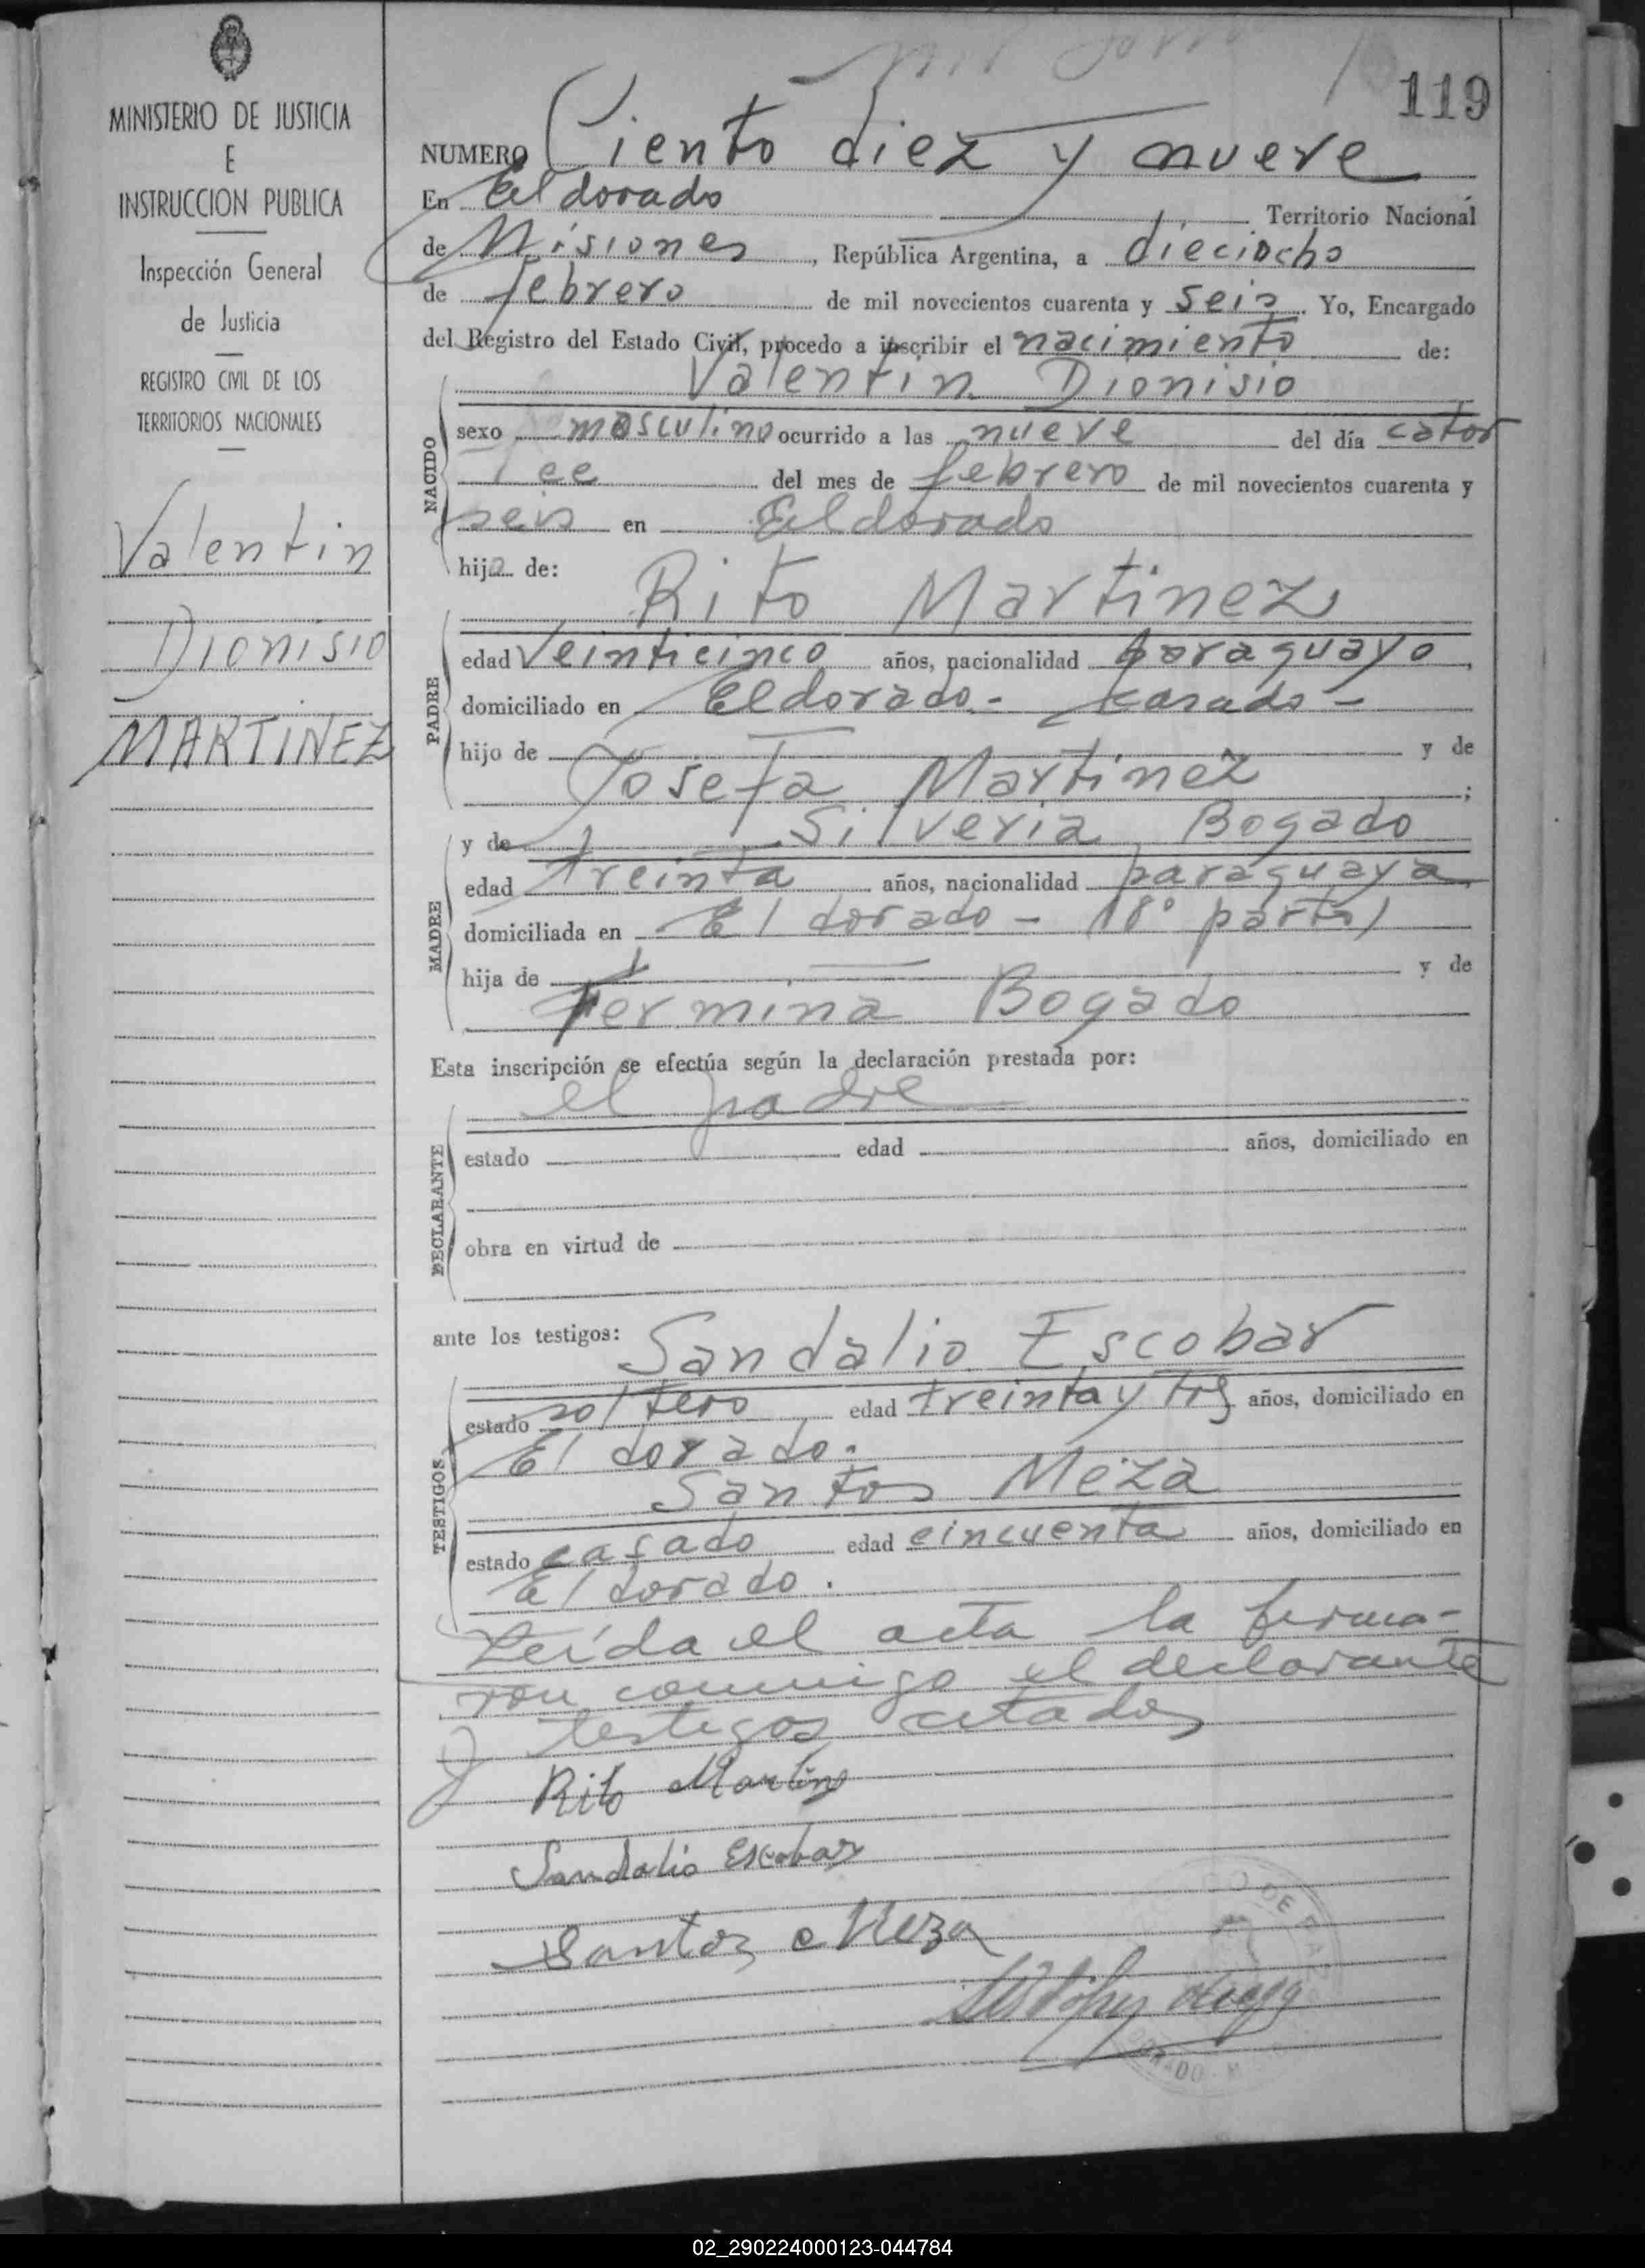 119
MINISTERIO DE JUSTICIA
E
INSTRUCCION PUBLICA
Inspección General
de Justicia
REGISTRO CIVIL DE LOS
TERRITORIOS NACIONALES
Valentin
Dionisio
MARTINEZ
NUMERO Ciento diez y nueve
En Eldorado Territorio Nacional
de Misiones, República Argentina, a dieciocho
de febrero de mil novecientos cuarenta y seis. Yo, Encargado
del Registro del Estado Civil, procedo a inscribir el nacimiento de:
Valentin Dionisio
NACIDO
sexo masculino ocurrido a las nueve del día cator
ce del mes de febrero de mil novecientos cuarenta y
seis en Eldorado
hijo de:
Rito Martinez
PADRE
edad Veinticinco años, nacionalidad paraguayo,
domiciliado en Eldorado - casado -
hijo de y de
Josefa Martinez;
y de Silveria Bogado
MADRE
edad treinta años, nacionalidad paraguaya,
domiciliada en El dorado - (8° parto)
hija de y de
Fermina Bogado
Esta inscripción se efectúa según la declaración prestada por:
el padre
DECLARANTE
estado edad años, domiciliado en
obra en virtud de
ante los testigos: Sandalio Escobar
TESTIGOS
estado soltero edad treinta y tres años, domiciliado en
El dorado.
Santos Meza
estado casado edad cincuenta años, domiciliado en
El dorado.
Leída el acta la firma-
ron conmigo el declarante
y testigos citados
Rito Martinez
Sandalio Escobar
Santos Meza
02_290224000123-044784